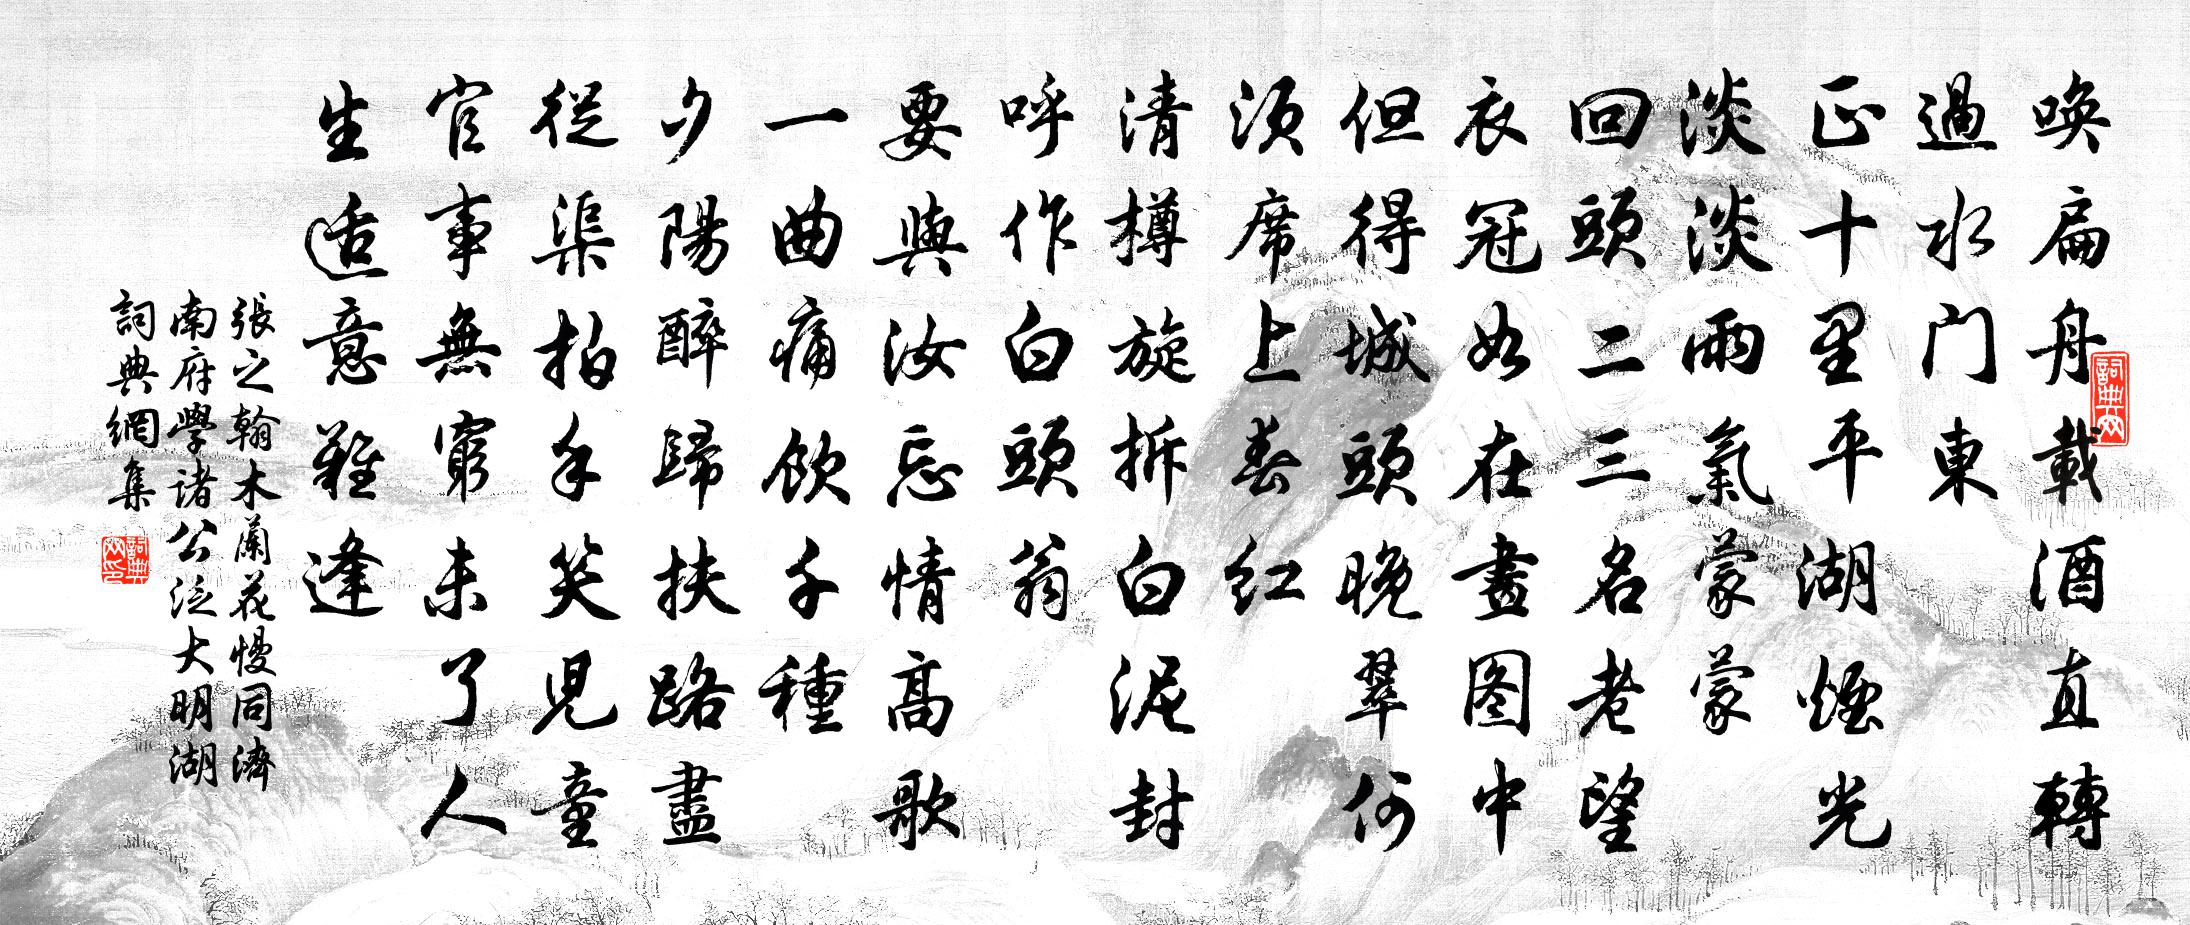 唤扁舟載酒直轉
過水门東
正十里平湖煙光
淡淡雨氣蒙蒙
回頭二三名老望
衣冠如在畫图中
但得城頭晚翠何
須席上春红
清樽旋拆白泥封
呼作白頭翁
要與汝忘情高歌
一曲痛飲千種
夕陽醉歸扶路盡
從渠拍手笑兒童
官事無窮未了人
生适意難逢
張之翰木蘭花慢同濟
南府學諸公泛大明湖
詞典網集
詞典網
詞典網印